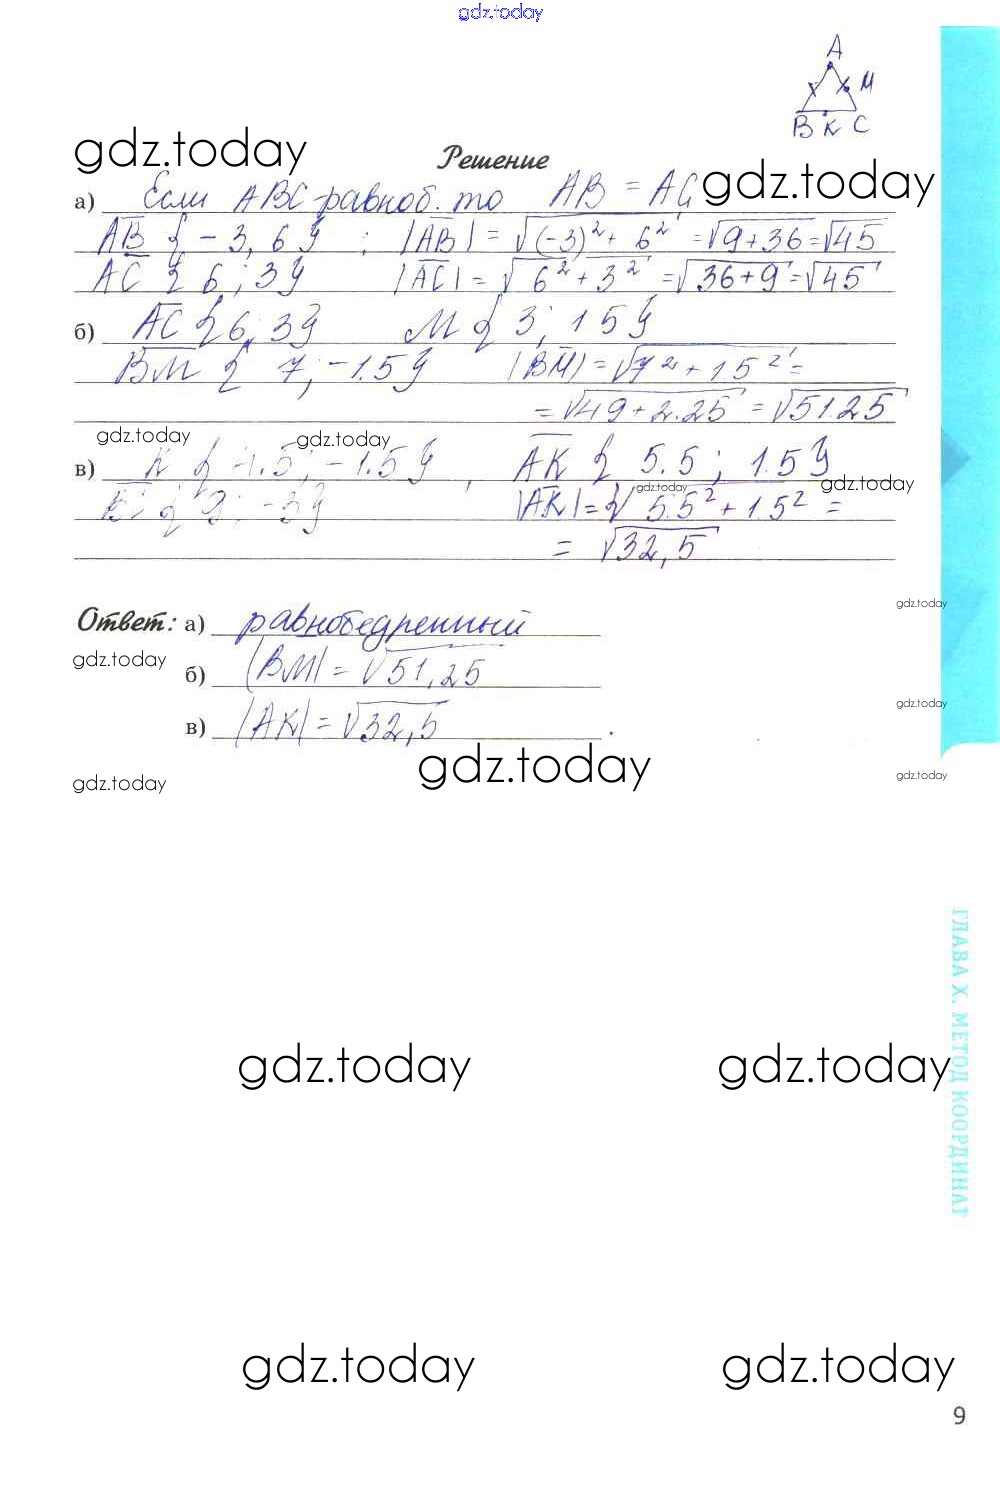 gdz.today
A
M
B K C
gdz.today
Решение
gdz.today
а) Если ABC равноб. то AB = AC
AB {-3, 6} ; |AB| = √(-3)²+ 6² = √9+36 = √45
AC {6; 3} |AC| = √6²+3² = √36+9 = √45
б) AC {6; 3} M {3; 1.5}
BM {7; -1.5} |BM| = √7²+1.5² =
= √49+2.25 = √51.25
gdz.today gdz.today
в) K {-1.5; -1.5} , AK {5.5; 1.5}
gdz.today gdz.today
|AK| = √5.5²+1.5² =
= √32,5
gdz.today
Ответ: а) равнобедренный
gdz.today
б) |BM| = √51,25
gdz.today
в) |AK| = √32,5 .
gdz.today
gdz.today
gdz.today
ГЛАВА X. МЕТОД КООРДИНАТ
gdz.today gdz.today
gdz.today gdz.today
9